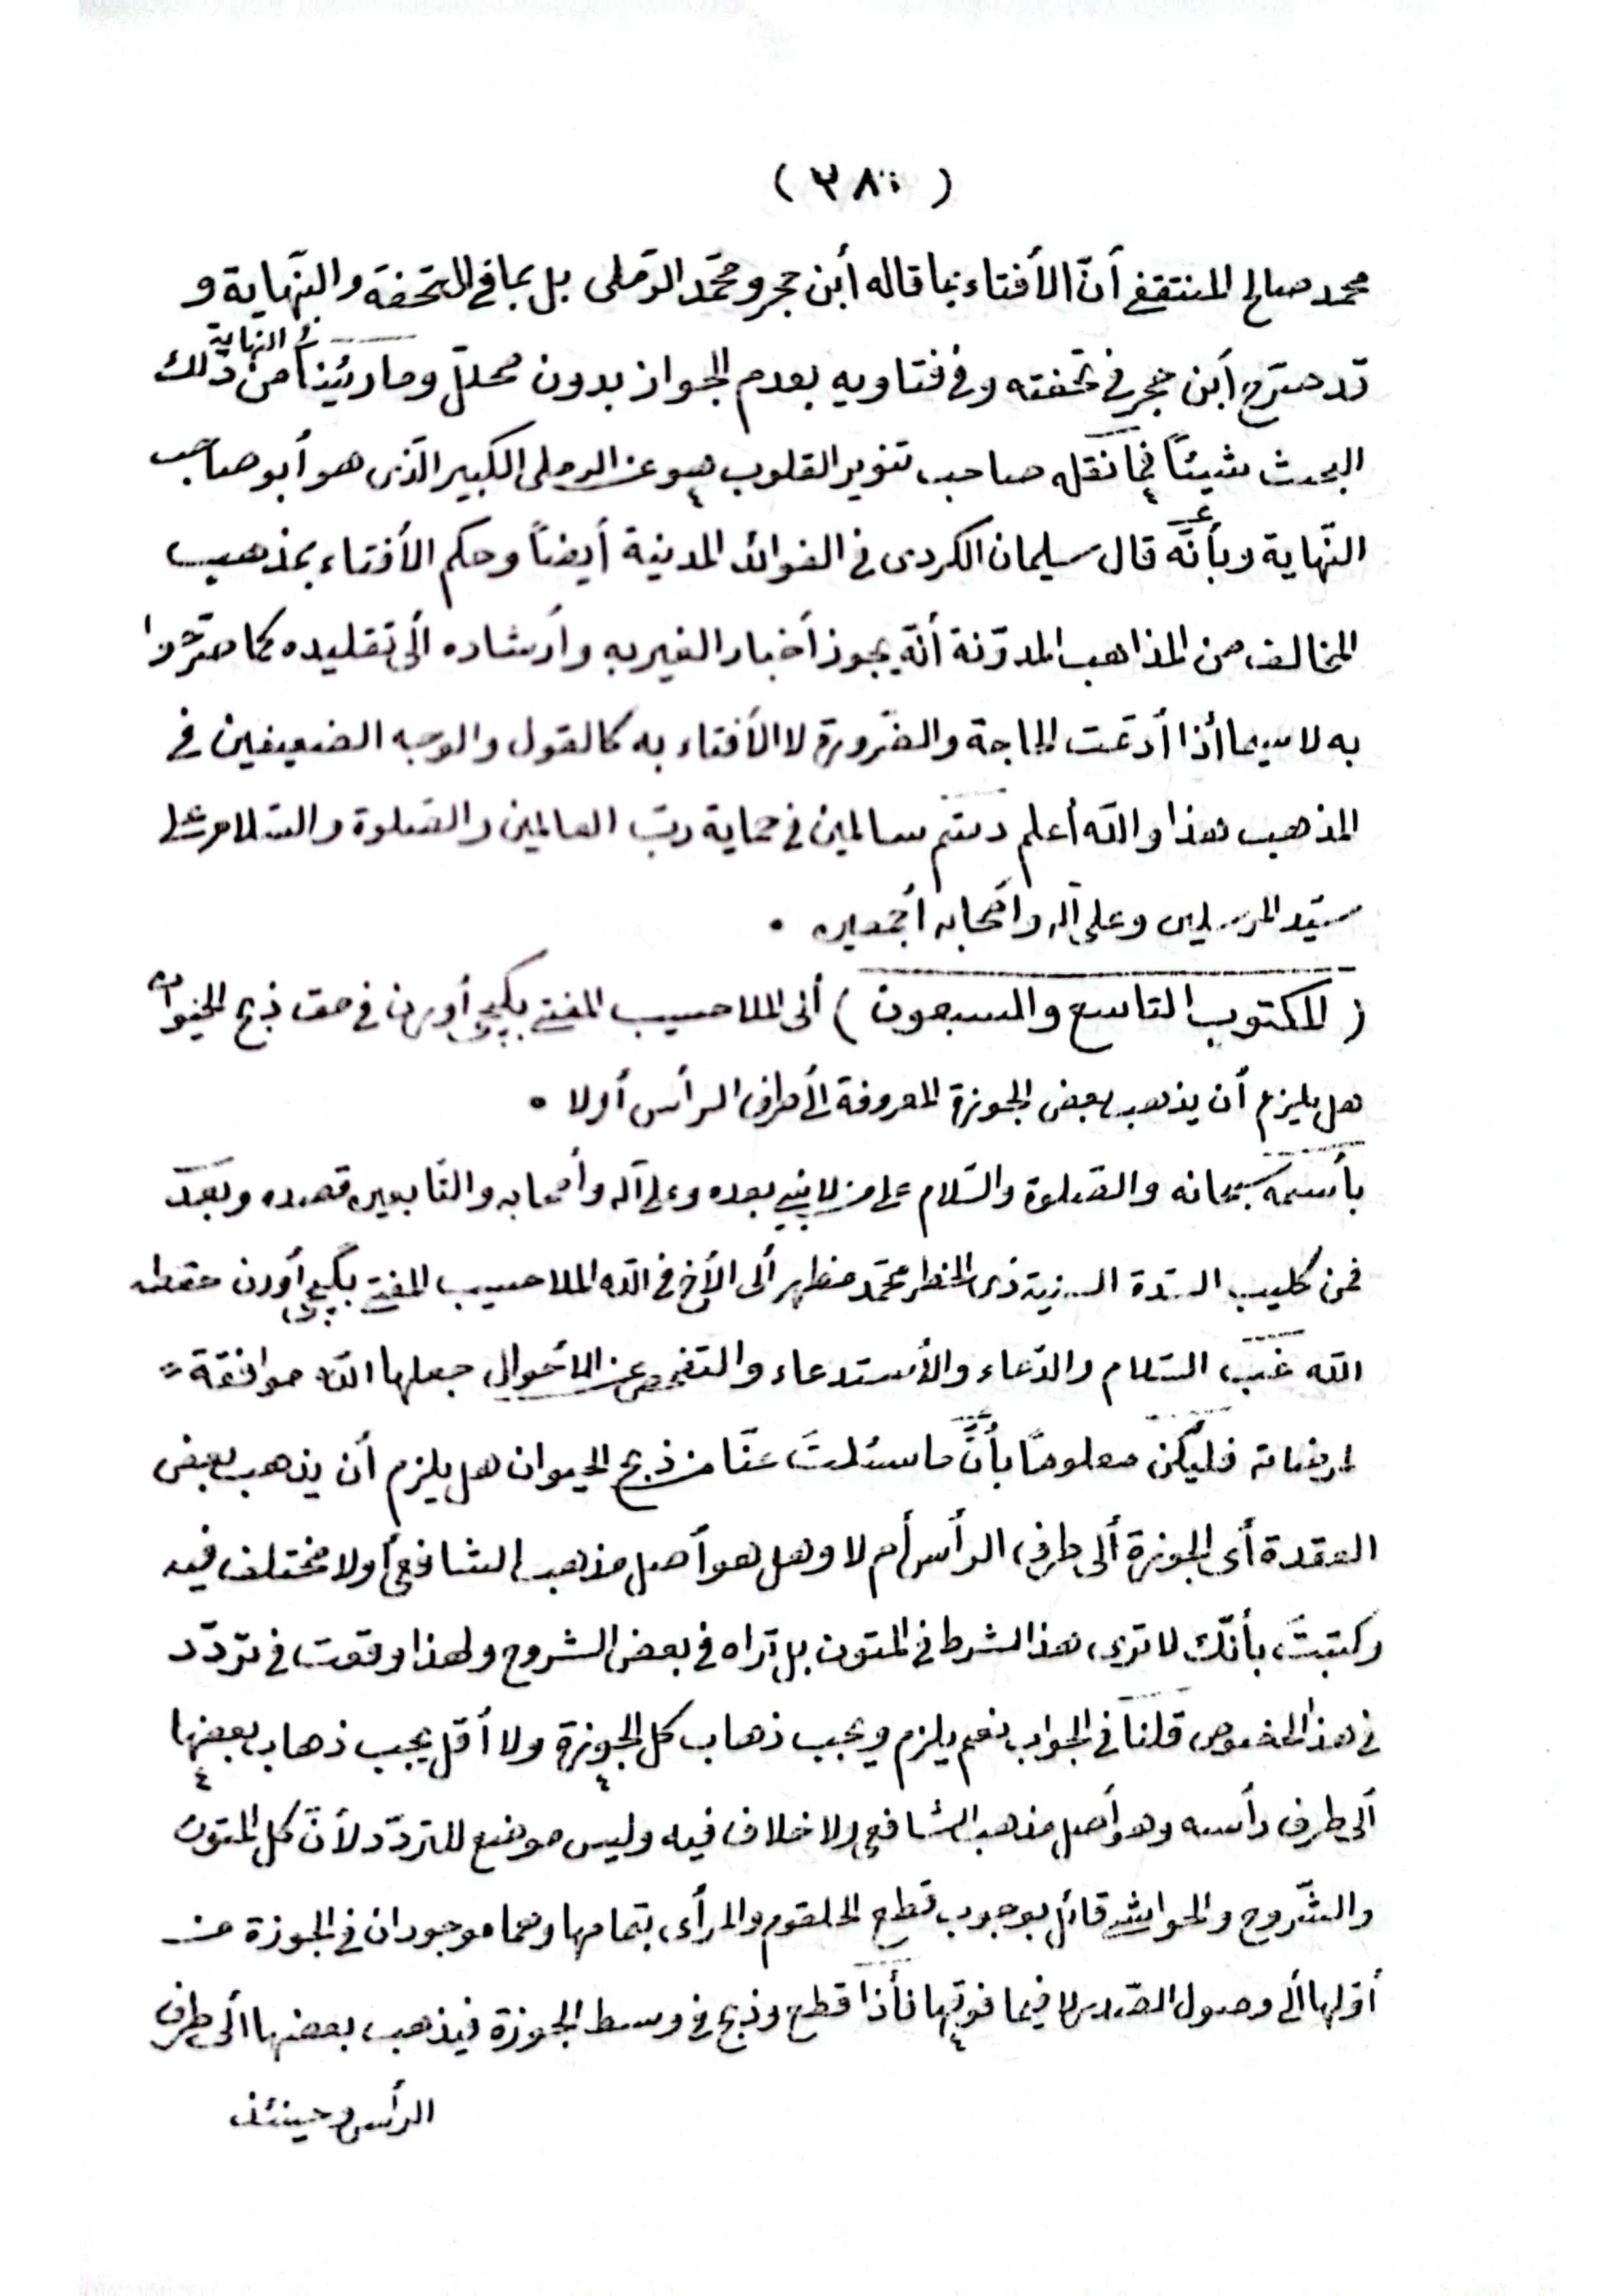 ( ٣٨٠ )
محمد صالح المنتقفى أنّ الأفتاء بما قاله أبن حجر ومحمّد الرّملى بل بما فى التّحفة والنّهاية و
فى النهاية
قد صرّح أبن حجر فى تحفته وفى فتاويه بعدم الجواز بدون محلّل وما رئينا من ذلك
البحث شيئاً فما نقله صاحب تنوير القلوب هو عن الرملى الكبير الّذى هو أبو صاحب
النّهاية وبأنّه قال سليمان الكردى فى الفوائد المدنية أيضاً وحكم الأفتاء بمذهب
المخالف من المذاهب المدوّنة أنّه يجوز أخبار الغير به وأرشاده ألى تقليده كما صرّحوا
به لا سيما أذا أدعّت الحاجة والضّرورة لا الأفتاء به كالقول والوجه الضعيفين فى
المذهب هذا والله أعلم دمتم سالمين فى حماية ربّ العالمين والصّلوة والسّلام على
سيّد المرسلين وعلى آله وأصحابه أجمعين ٠
( المكتوب التاسع والسبعون ) ألى الملا حسيب المفتى بگيچى أورن فى حق ذبح الحيوان
هل يلزم أن يذهب بعض الجوزة المعروفة ألى طرف الرأس أولا ٠
بأسمه سبحانه والصّلوة والسّلام على من لا نبى بعده وعلى آله وأصحابه والتّابعين قصده وبعد
فمن كليب السّدة السنية ذى الخطر محمّد مظهر ألى الأخ فى الله الملا حسيب المفتى بگيچى أورن حفظه
الله غبّ السّلام والدّعاء والأستدعاء والتفحص عن الأحوال جعلها الله موافقة =
لرضائه فليكن معلوماً بأنّ ما سئلتَ عنّا من ذبح الحيوان هل يلزم أن يذهب بعض
العقدة أى الجوزة ألى طرف الرأس أم لا وهل هو أصل مذهب الشافعى أولا مختلف فيه
وكتبتَ بأنّك لا ترى هذا الشرط فى المتون بل تراه فى بعض الشروح ولهذا وقعت فى تردّد
فى هذا الخصوص قلنا فى الجواب نعم يلزم ويجب ذهاب كل الجوزة ولا أقل يجب ذهاب بعضها
ألى طرف رأسه وهو أصل مذهب الشافعى ولا خلاف فيه وليس موضع للتردّد لأنّ كل المتون
والشّروح والحواشى قائل بوجوب قطع الحلقوم والمرأى بتمامها وهما موجودان فى الجوزة من
أوّلها ألى وصول الصّدر لا فيما فوقها فأذا قطع وذبح فى وسط الجوزة فيذهب بعضها ألى طرف
الرأس وحينئذ